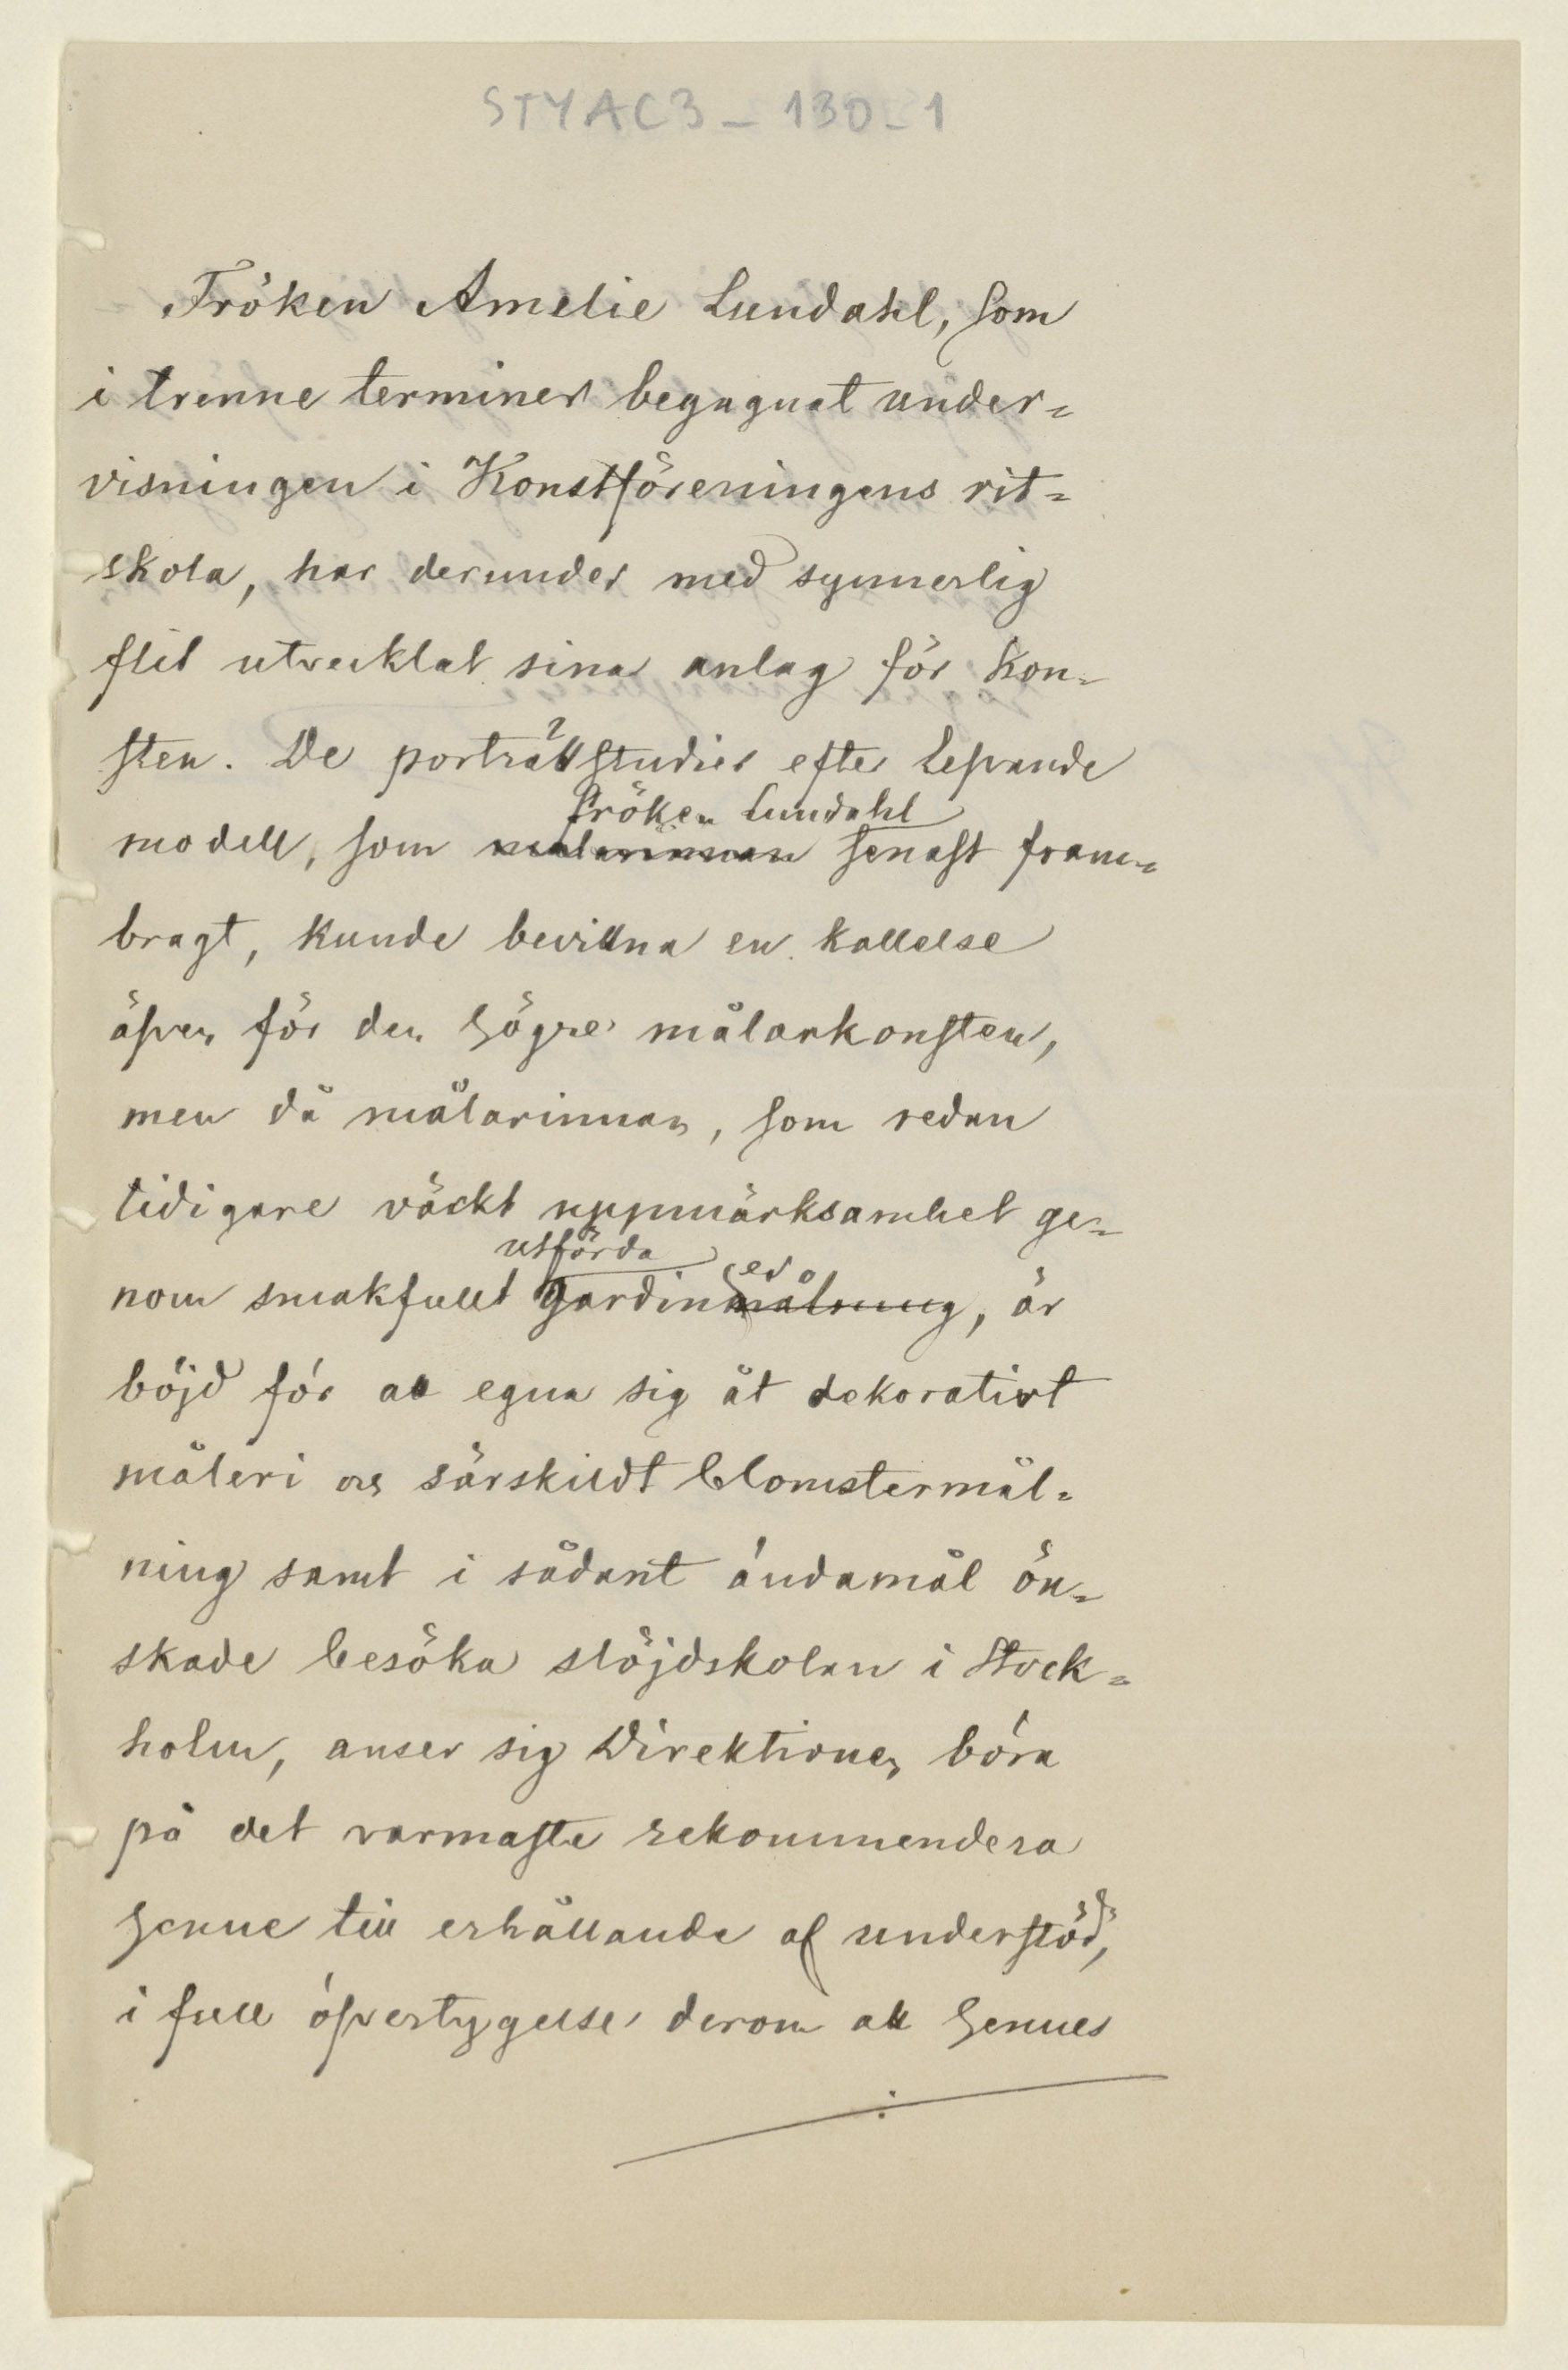 STYAC3 - 130 - 1
Fröken Amelie Lundahl, som
i trenne terminer begagnat under=
visningen i Konstföreningens rit=
skola, har derunder med synnerlig
flit utvecklat sina anlag för kon=
sten. De porträttstudier efter lefvande
fröken Lundahl
modell, som målarinnan senast fram=
bragt, kunde bevittna en kallelse
äfven för den högre målarkonsten,
men då målarinnan, som redan
tidigare väckt uppmärksamhet ge=
utförda er
nom smakfullt gardinmålning, är
böjd för att egna sig åt dekorativt
måleri och särskildt blomstermål=
ning samt i sådant ändamål ön=
skade besöka slöjdskolan i Stock=
holm, anser sig Direktionen böra
på det varmaste rekommendera
henne till erhållande af understöd,
i full öfvertygelse derom att hennes